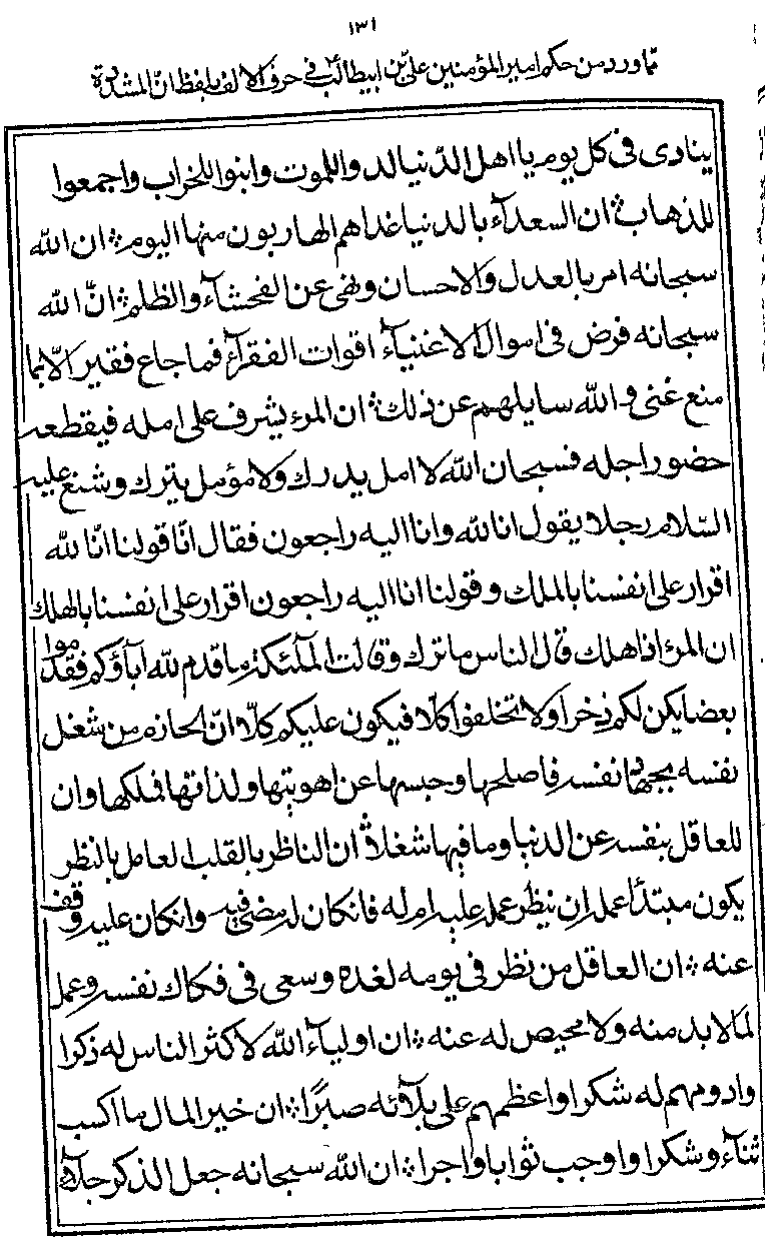 ١٣١
مما ورد من حكم امير المؤمنين علي بن ابيطالب في حرف الالف بلفظ ان المشددة
ينادى فى كل يوم يا اهل الدنيا لدوا للموت وابنوا للخراب واجمعوا
للذهاب ؛ ان السعدآء بالدنيا غدا هم الهاربون منها اليوم ؛ ان الله
سبحانه امر بالعدل والاحسان ونهى عن الفحشآء والظلم ؛ انّ الله
سبحانه فرض فى اموال الاغنيآء اقوات الفقرآء فما جاع فقير الّا بما
منع غنى والله سايلهم عن ذلك ؛ ان المرء يشرف على امله فيقطعه
حضور اجله فسبحان الله لا امل يدرك ولا مؤمل يترك وشنع عليه
السّلام رجلا يقول انا لله وانا اليه راجعون فقال انّا قولنا انّا لله
اقرار على انفسنا بالملك وقولنا انا اليه راجعون اقرار على انفسنا بالهلك
ان المرء اذا هلك قال الناس ما ترك وقالت الملٓئكة ما قدم لله ابآؤكم فقدموا
بعضا يكن لكم ذخرا ولا تخلفوا كلّا فيكون عليكم كلّا انّ الحازم من شغل
نفسه بجهاد نفسه فاصلحها وحبسها عن اهويتها ولذاتها فملكها وان
للعاقل بنفسه عن الدنيا وما فيها شغلا ؛ ان الناظر بالقلب العامل بالنظر
يكون مبتدأ عمله ان ينظر عمله عليه ام له فانكان له مضى فيه وانكان عليه وقف
عنه ؛ ان العاقل من نظر فى يومه لغده وسعى فى فكاك نفسه وعمل
لما لا بد منه ولا محيص له عنه ؛ ان اوليآء الله لاكثر الناس له ذكرا
وادومهم له شكرا واعظمهم على بلآئه صبرًا ؛ ان خير المال ما اكسب
ثنآء وشكرا واوجب ثوابا واجرا ؛ ان الله سبحانه جعل الذكر جلآء